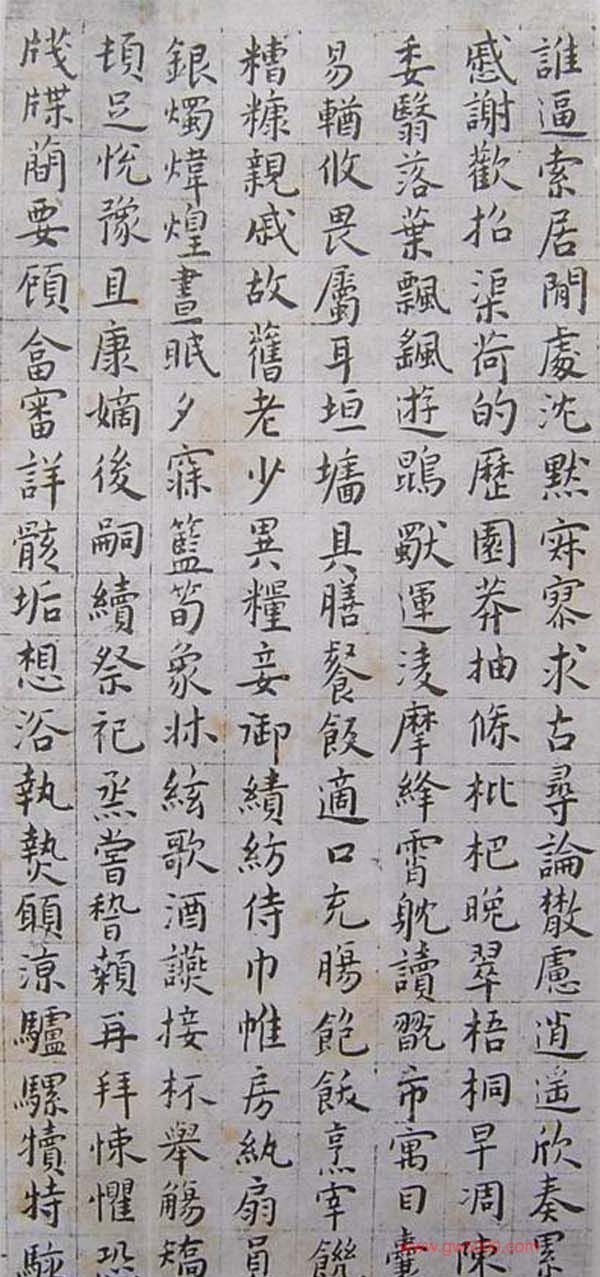 誰逼索居閒處沈默寂寥求古尋論散慮逍遙欣奏累
慼謝歡招渠荷的歷園莽抽條枇杷晚翠梧桐早凋陳
委翳落葉飄颻遊鵾獨運淩摩絳霄耽讀翫市寓目囊
易輶攸畏屬耳垣墻具膳餐飯適口充腸飽飫烹宰饑
糟糠親戚故舊老少異糧妾御績紡侍巾帷房紈扇員
銀燭煒煌晝眠夕寐籃筍象牀絃歌酒讌接杯舉觴矯
頓足悅豫且康嫡後嗣續祭祀烝嘗稽顙再拜悚懼恐
牋牒簡要顧答審詳骸垢想浴執熱願涼驢騾犢特駭